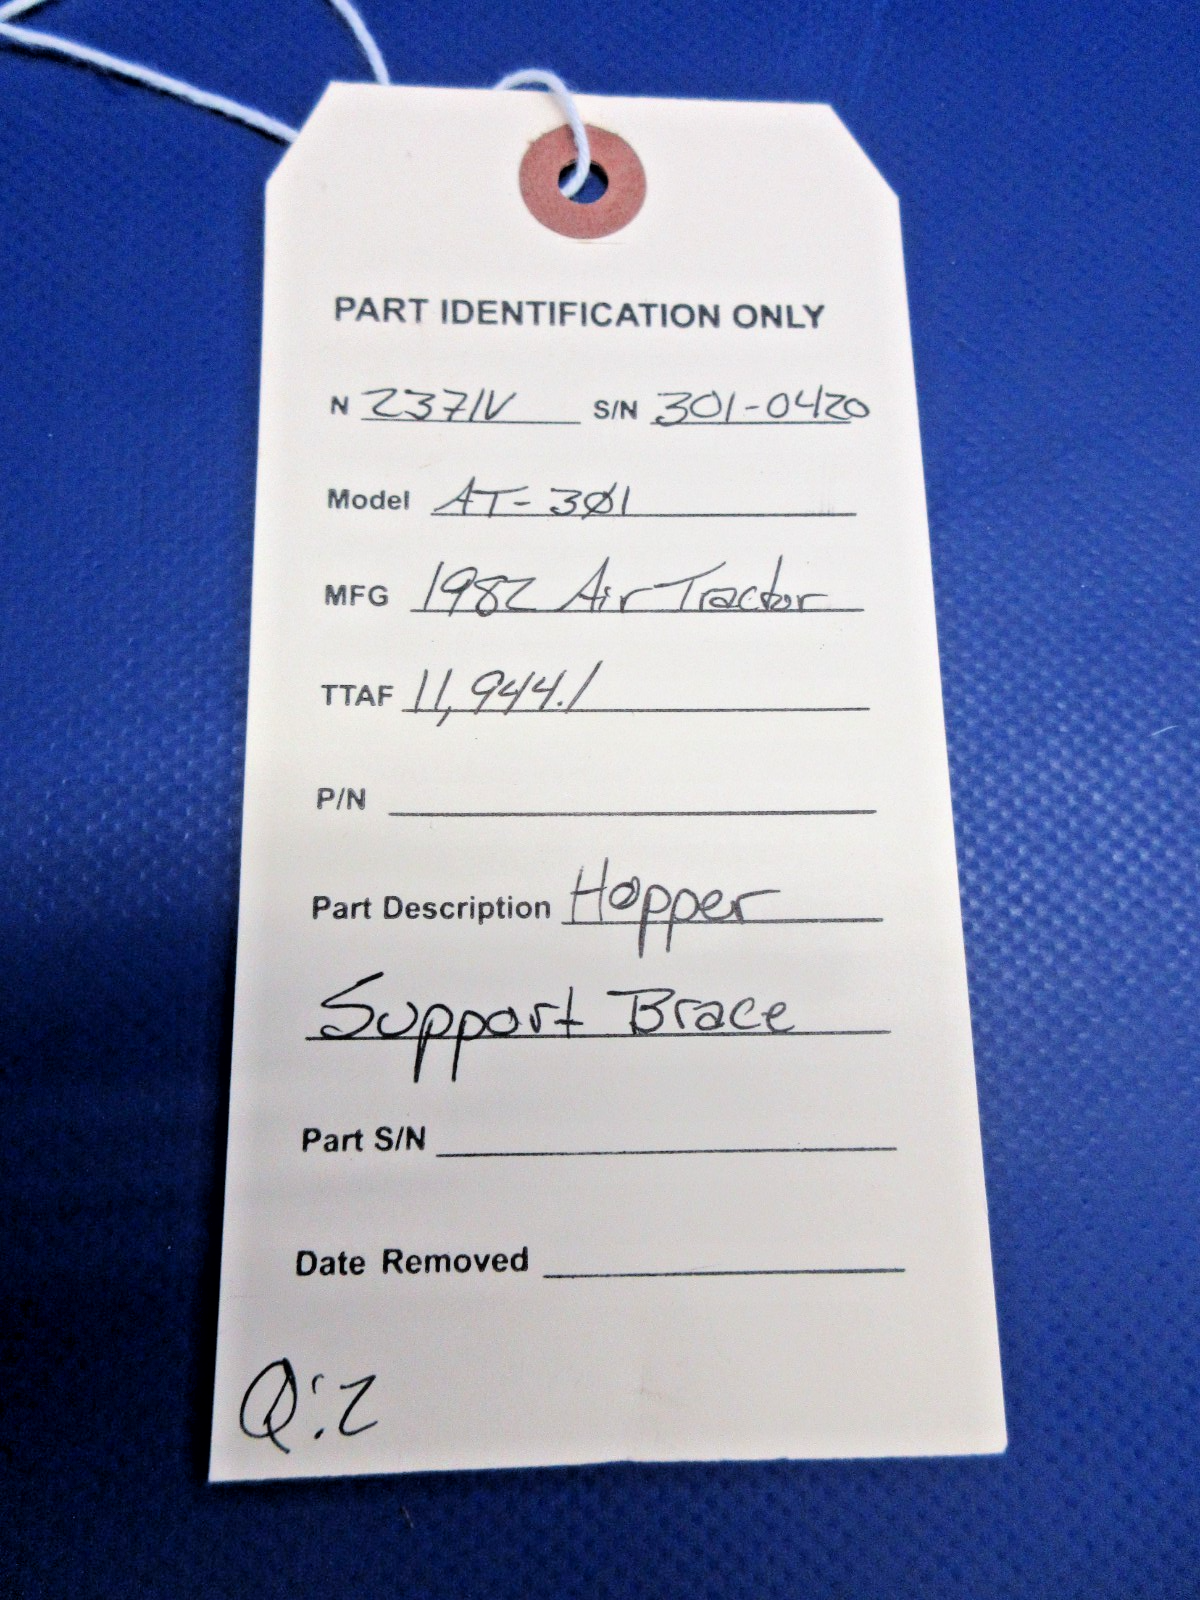 PART IDENTIFICATION ONLY
N 2371V S/N 301-0420
Model AT-301
MFG 1982 Air Tractor
TTAF 11,944.1
P/N
Part Description Hopper
Support Brace
Part S/N
Date Removed
Q:2